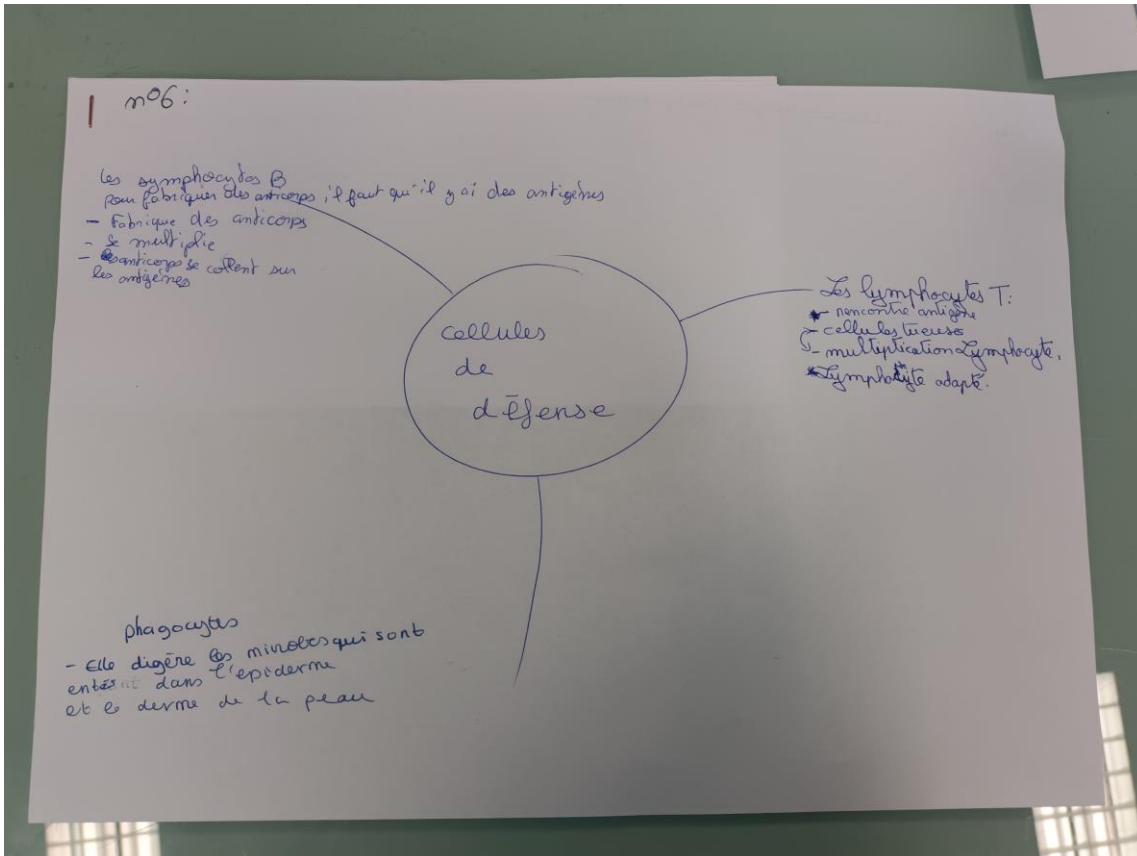 n°6:
les symphocytes B
pour fabriquer des anticorps, il faut qu'il y ai des antigènes
- Fabrique des anticorps
- se multiplie
- les anticorps se collent sur
les antigènes
cellules
de
défense
Les lymphocytes T:
- rencontre antigène
- cellules tueuse
- multiplication Lymphocyte.
- Lymphocyte adapté.
phagocytes
- Elle digère les microbes qui sont
dans l'epiderme
et le derme de la peau